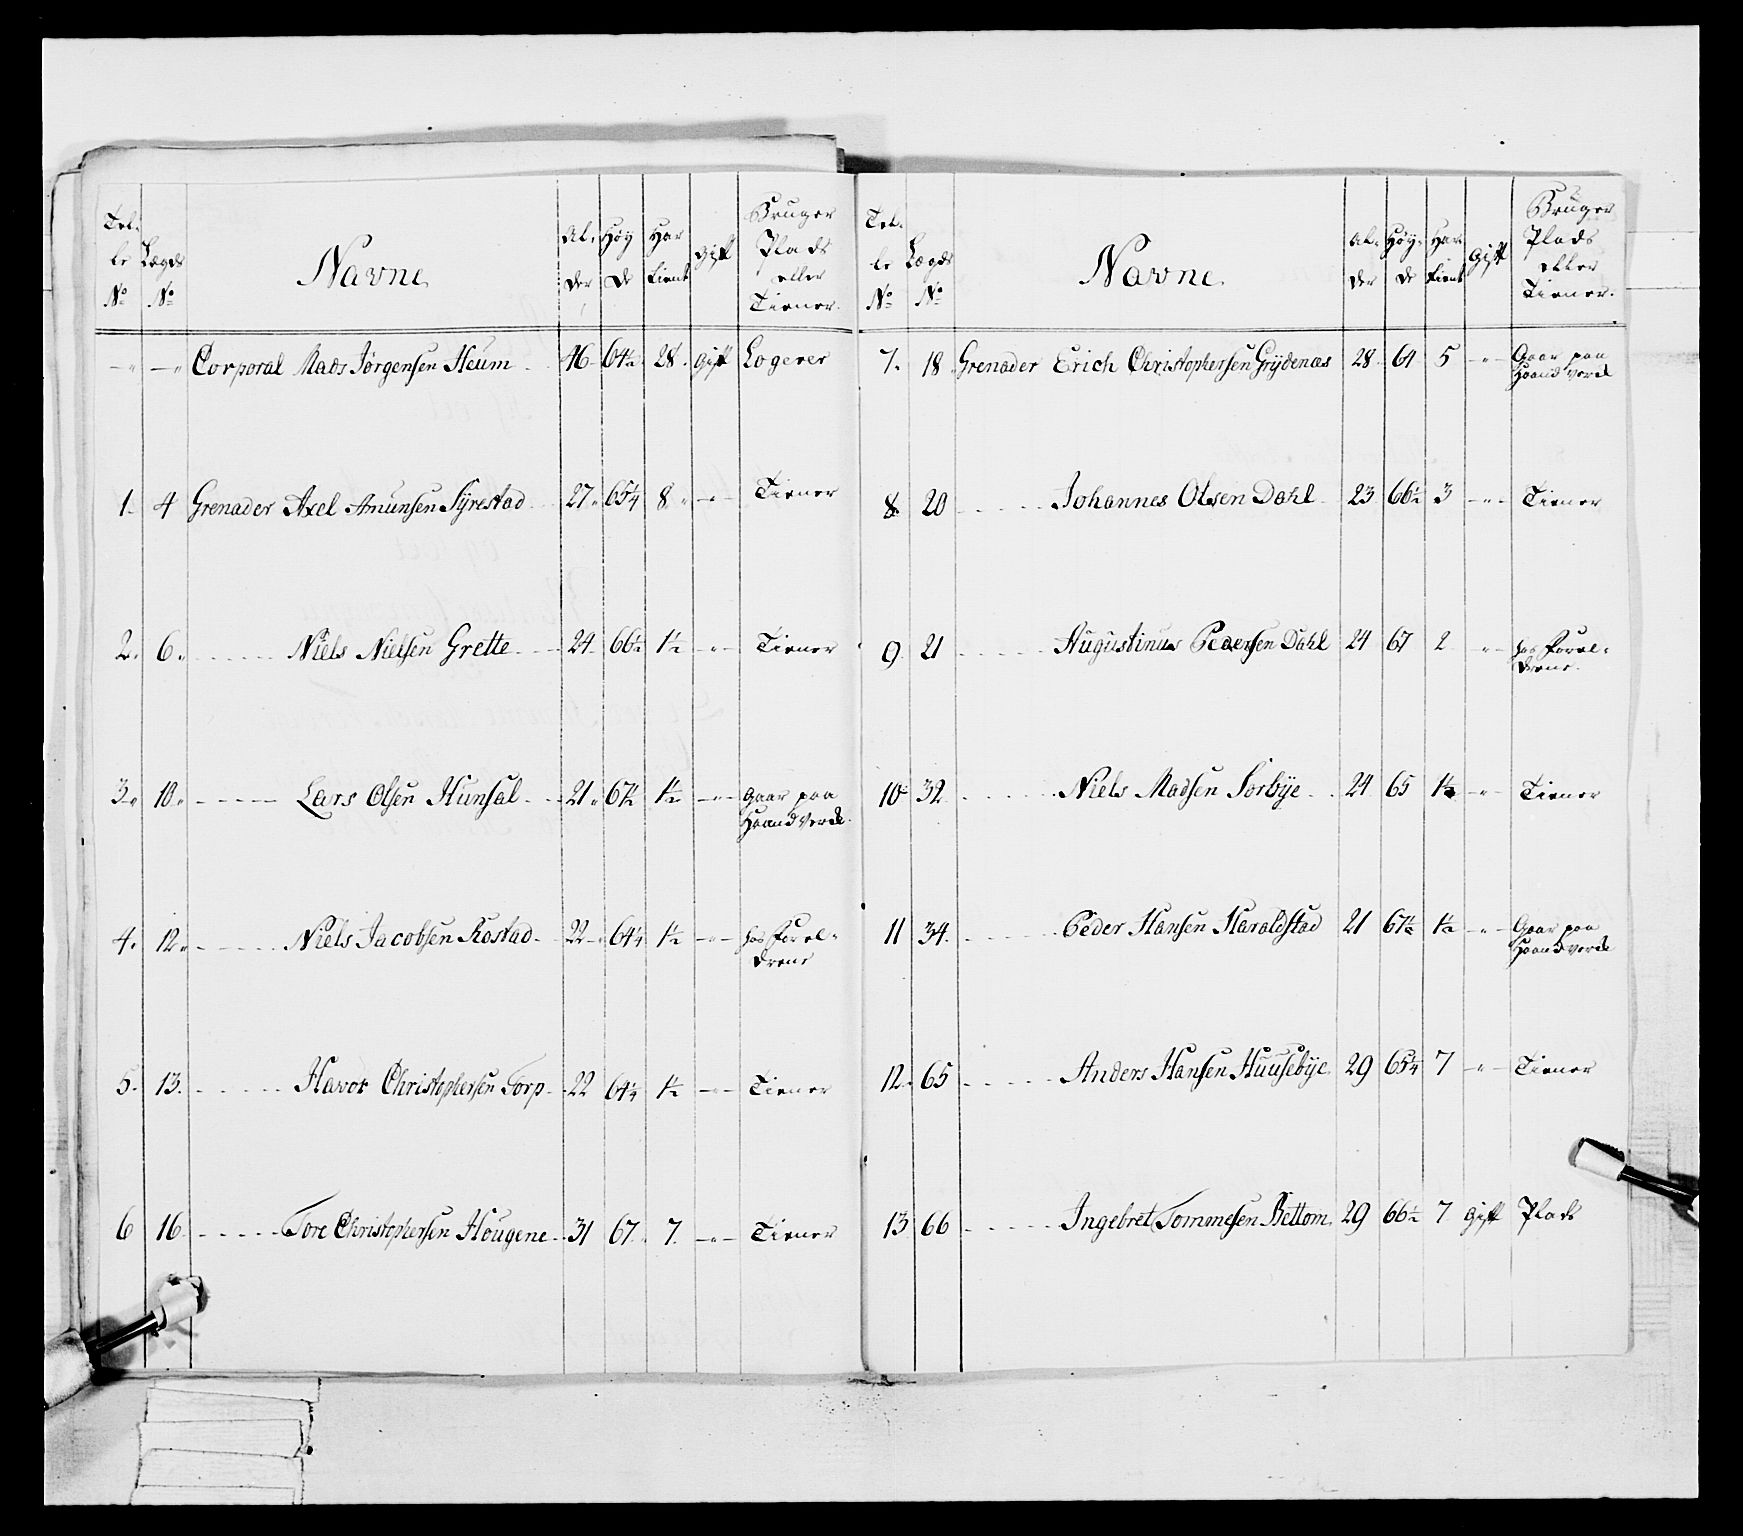 Tel-
le
No
Lægds
No
Navne
Al-
der
Høy
de
Har
tient
Gift
Bruger
Plads
eller
Tiener.
-"- -" Corporal Mads Jørgensen Heum 46 64½ 28 Gift Logerer
1. 4 Grenader Axel Amunsen Syrestad 27 65¼ 8 -"- Tiener
2. 6. Niels Nielsen Grette 24 66½ 1½ -"- Tiener
3. 10. Lars Olsen Hunsal 21 67½ 1½ -"- Gaar paa
Haandverk.
4. 12. Niels Jacobsen Rostad 22 64¼ 1½ -"- hos Forel-
drene
5. 13. Havor Christophersen Torp 22 64¼ 1½ -"- Tiener
6 16. Tore Christophersen Hougene 31 67 7. -"- Tiener
Tel-
le
No
Lægds
No
Navne
Al-
der
Høy-
de
Har
tient
Gift
Bruger
Plads
eller
Tiener.
7. 18 Grenader Erich Christophersen Grydenæs 28 64 5 -"- Gaar paa
Haandverk
8 20 Johannes Olsen Dahl 23 66½ 3 -"- Tiener
9 21 Augustinus Pedersen Dahl 24 67 2 -"- hos Forel-
drene.
10 32 Niels Madsen Sorbye 24 65 1½ -"- Tiener
11 34. Peder Hansen Haraldstad 21 67½ 1½ -"- Gaar paa
Haandverk
12. 65 Anders Hansen Huusebye 29 65¼ 7 -"- Tiener
13 66 Ingebret Tommesen Bettom 29 66½ 7 Gift Plads